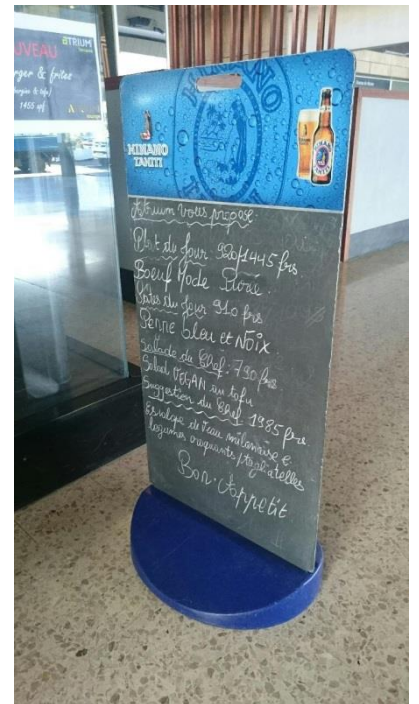 UVEAU
ATRIUM
rger & frites
1455 xpf
HINANO
TAHITI
HINANO
Atrium vous propose:
Plat du jour 920/1445 frs
Boeuf Mode
Pâtes du jour 910 frs
Penne bleu et NOIX
Sallade du Chef: 790 frs
Salad VEGAN au tofu
Suggestion du Chef 1985 frs
Escalope de veau milanaise et
légumes croquants/tagliatelles
Bon Appetit